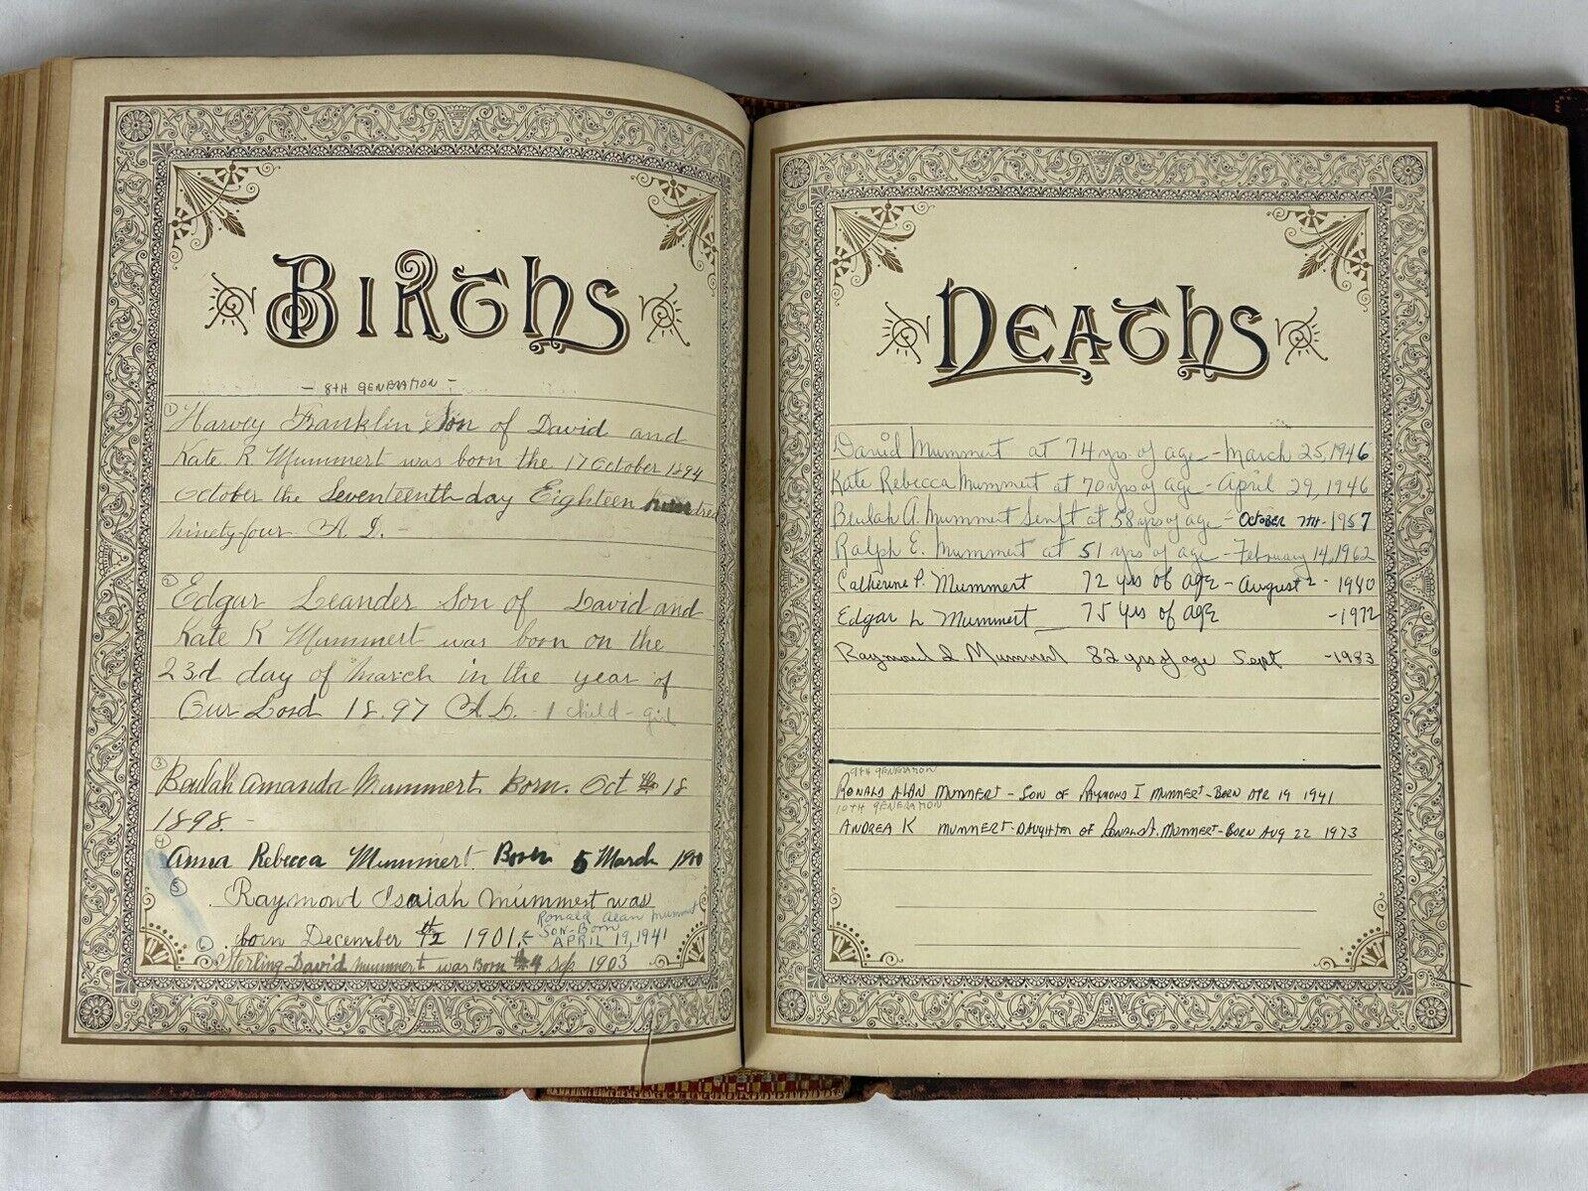 BIRTHS
- 8TH GENERATION -
① Harvey Franklin Son of David and
Kate R Mummert was born the 17 October 1894
October the Seventeenth day Eighteen
ninety-four A. D. -
② Edgar Leander Son of David and
Kate R Mummert was born on the
23rd day of March in the year of
Our Lord 18.97 A.D. - 1 child - girl
③ Beulah Amanda Mummert Born. Oct 18
1898. -
④ Anna Rebecca Mummert. Born 5 March 190
⑤ Raymond Isaiah Mummert was
born December 2 1901.
Ronald Alan Mummert
Son-Born
APRIL 19, 1941
⑥ Sterling David Mummert was Born 4 Sep 1903
DEATHS
David Mummert at 74 yrs of age - March 25, 1946
Kate Rebecca Mummert at 70 yrs of age - April 29, 1946
Beulah A. Mummert Senft at 58 yrs of age - OCTOBER 7TH - 1957
Ralph E. Mummert at 51 yrs of age - February 14, 1962
Catherine P. Mummert 72 yrs of age - August 2 -
Edgar L Mummert 75 yrs of age - 1972
Raymond I Mummert 82 yrs of age Sept - 1983
9TH GENERATION
RONALD ALAN MUMMERT - SON OF RAYMOND I MUMMERT - BORN APR 19 1941
10TH GENERATION
ANDREA K MUMMERT - DAUGHTER OF RONALD A. MUMMERT - BORN AUG 22 1973